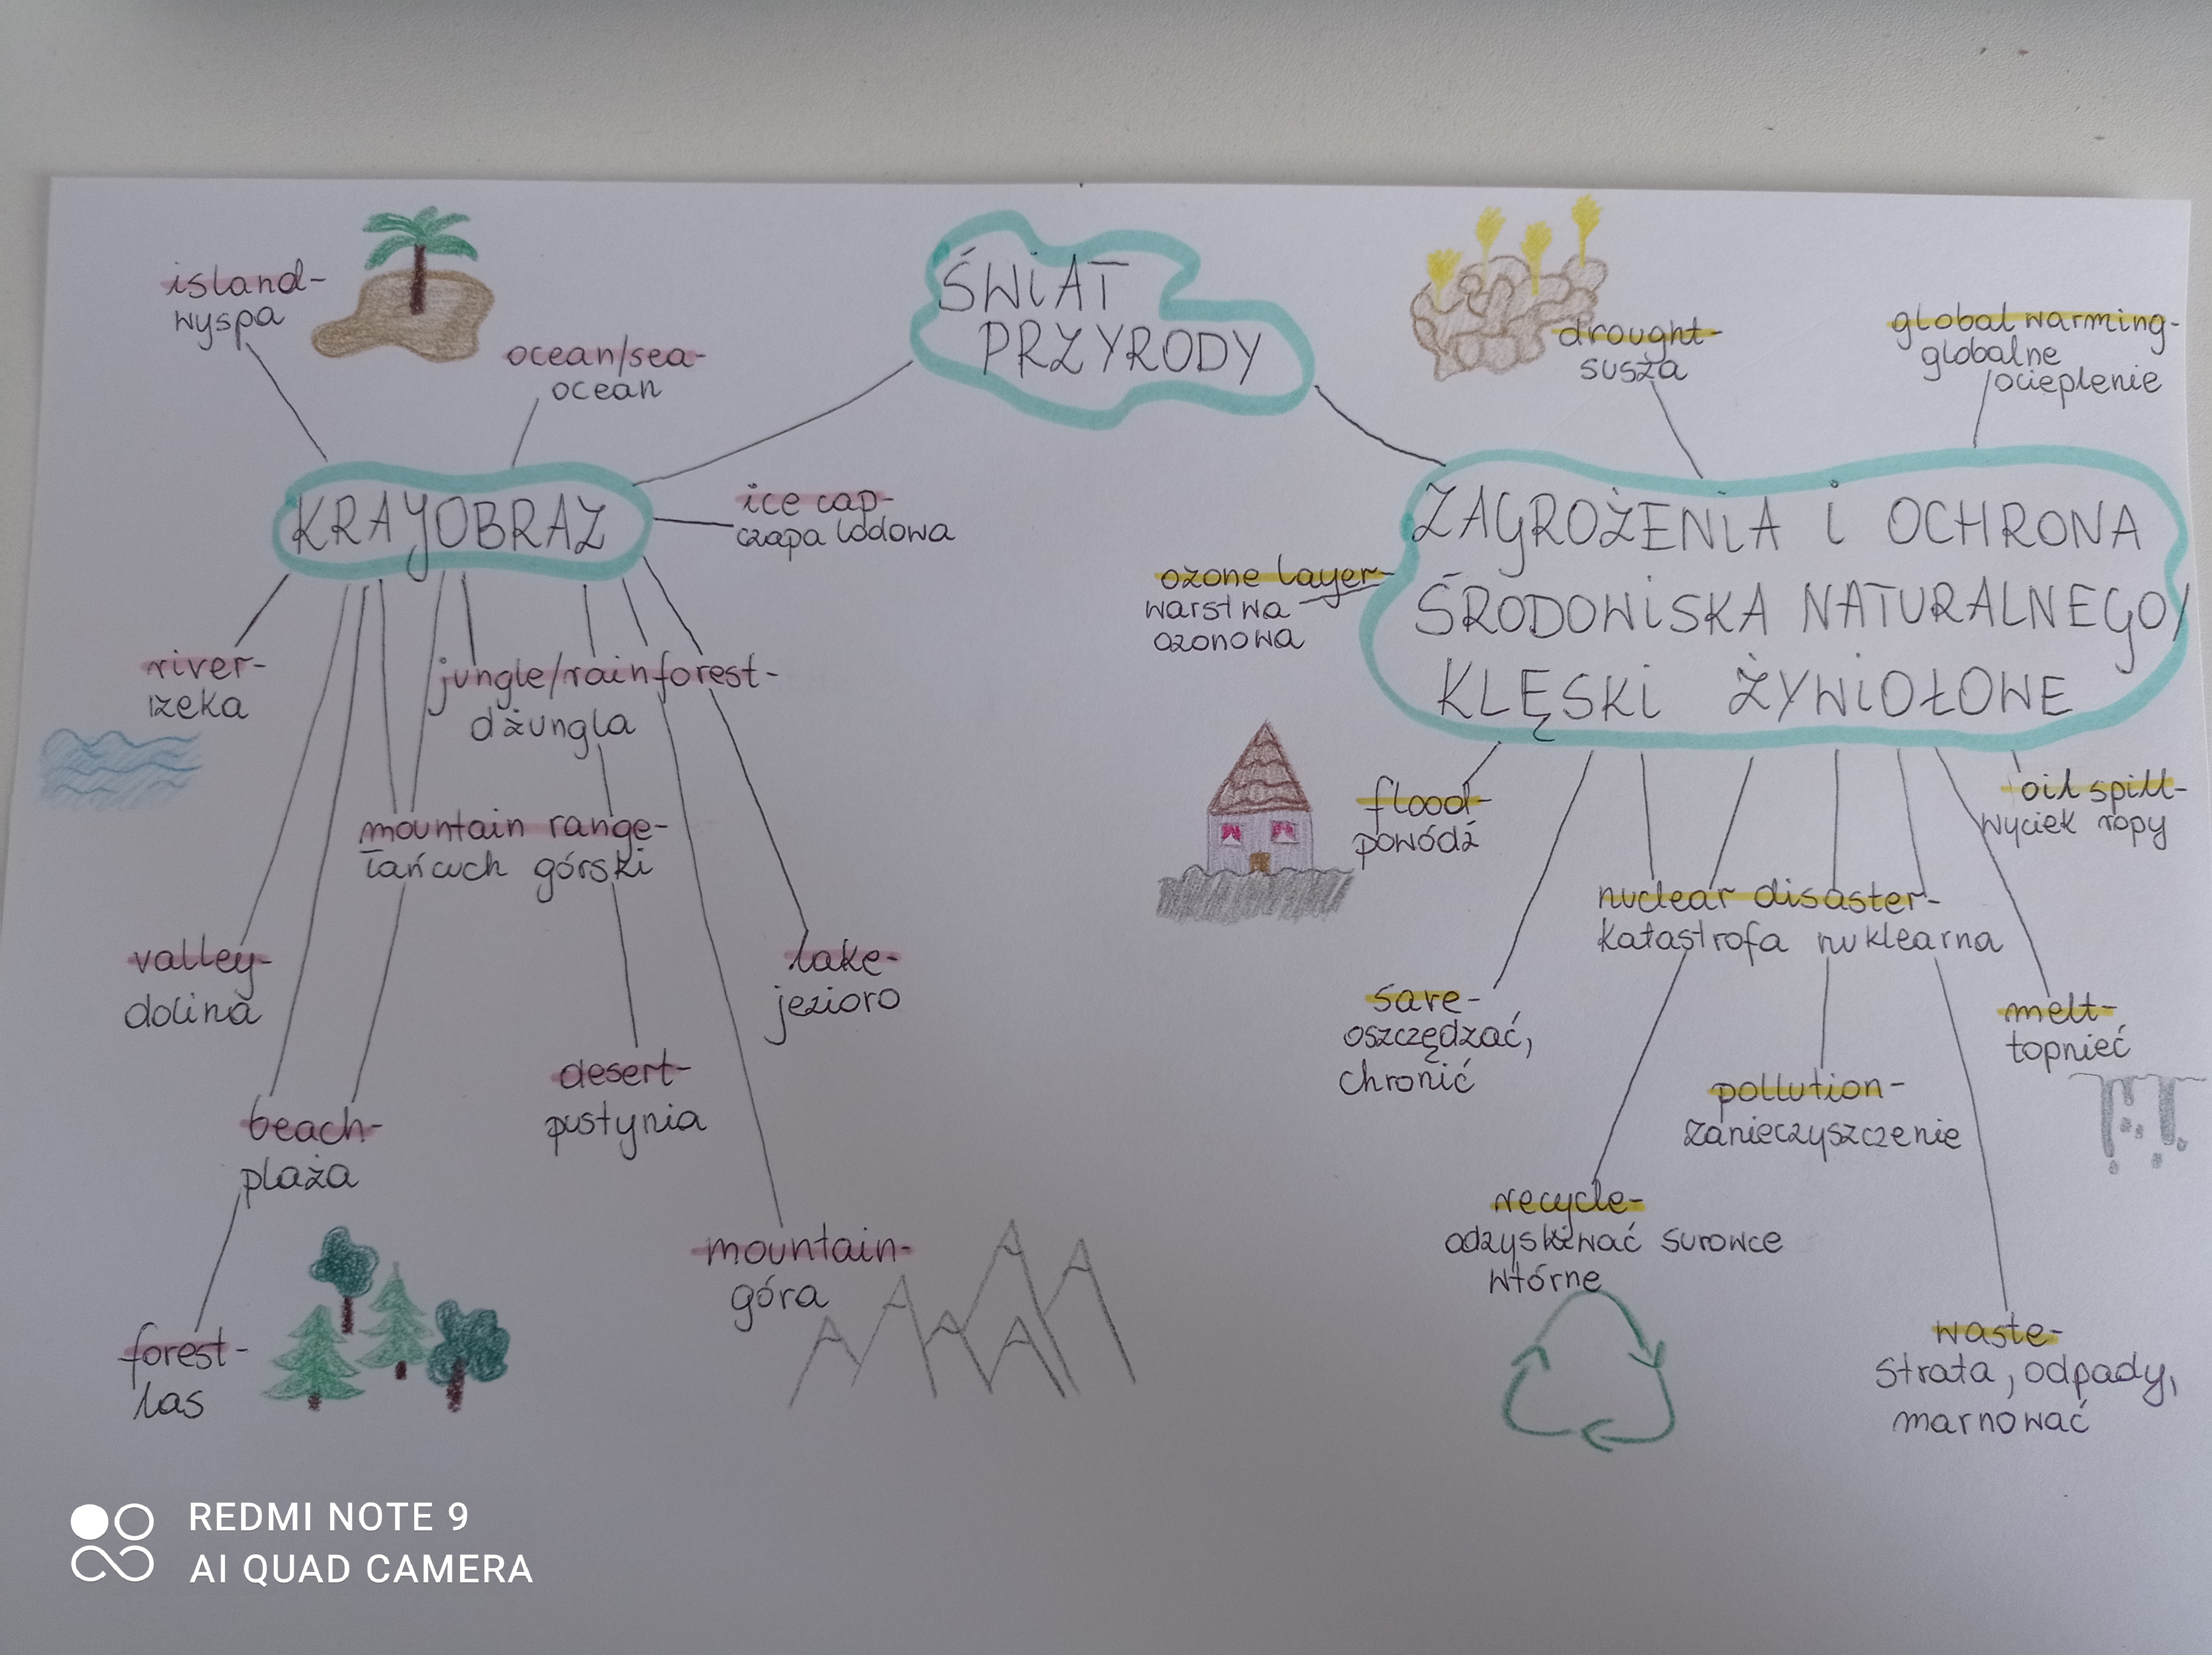 ŚWIAT
PRZYRODY
island-
wyspa
ocean/sea-
ocean
KRAJOBRAZ
ice cap-
czapa lodowa
river-
rzeka
jungle/rainforest-
dżungla
mountain range-
łańcuch górski
valley-
dolina
lake-
jezioro
beach-
plaża
desert-
pustynia
forest-
las
mountain-
góra
drought-
susza
global warming-
globalne
ocieplenie
ZAGROŻENIA i OCHRONA
ŚRODOWISKA NATURALNEGO/
KLĘSKI ŻYWIOŁOWE
ozone layer-
warstwa
ozonowa
flood-
powódź
oil spill-
wyciek ropy
nuclear disaster-
katastrofa nuklearna
save-
oszczędzać,
chronić
melt-
topnieć
pollution-
zanieczyszczenie
recycle-
odzyskiwać surowce
wtórne
waste-
strata, odpady,
marnować
REDMI NOTE 9
AI QUAD CAMERA